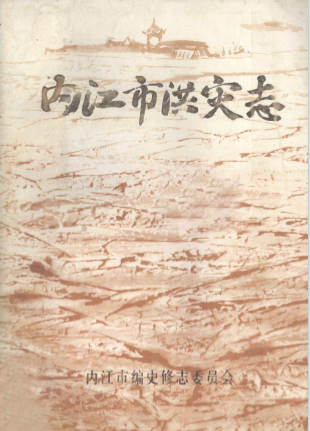 内江市洪灾志
内江市编史修志委员会